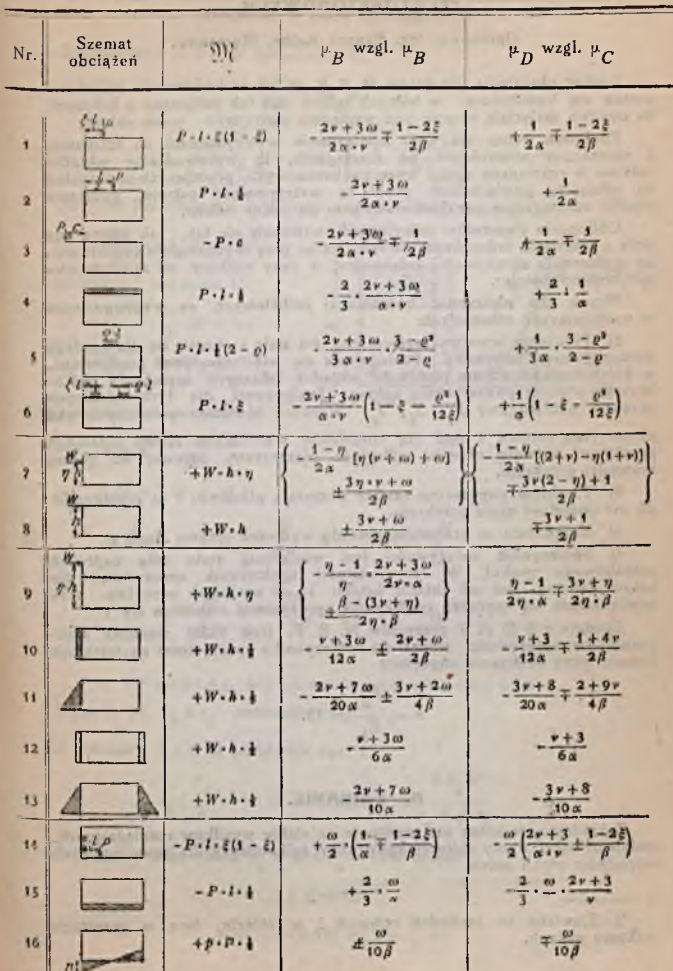 Nr. Szemat obciążeń 𝔐 μ_B wzgl. μ_B μ_D wzgl. μ_C
1 P·l·ξ(1 - ξ) - (2ν + 3ω)/(2α·ν) ∓ (1 - 2ξ)/(2β) + 1/(2α) ∓ (1 - 2ξ)/(2β)
2 - (2ν + 3ω)/(2α·ν) + 1/(2α)
3 - P·c - (2ν + 3ω)/(2α·ν) ∓ 1/(2β) + 1/(2α) ∓ 1/(2β)
4 - 2/3 · (2ν + 3ω)/(α·ν) + 2/3 · 1/α
5 - (2ν + 3ω)/(3α·ν) · (3 - ϱ²)/(2 - ϱ) + 1/(3α) · (3 - ϱ²)/(2 - ϱ)
6 P·l·ξ - (2ν + 3ω)/(α·ν) (1 - ξ - ϱ²/(12ξ)) + 1/α (1 - ξ - ϱ²/(12ξ))
7 W η·h + W·h·η { - (1 - η)/(2α) [η(ν + ω) + ω] ± (3η·ν + ω)/(2β) } { - (1 - η)/(2α) [(2 + ν) - η(1 + ν)] ∓ (3ν(2 - η) + 1)/(2β) }
8 W h + W·h ± (3ν + ω)/(2β) ∓ (3ν + 1)/(2β)
9 W η·h + W·h·η { - (η - 1)/η · (2ν + 3ω)/(2ν·α) ± (β - (3ν + η))/(2η·β) } (η - 1)/(2η·α) ∓ (3ν + η)/(2η·β)
10 - (ν + 3ω)/(12α) ± (2ν + ω)/(2β) - (ν + 3)/(12α) ∓ (1 + 4ν)/(2β)
11 - (2ν + 7ω)/(20α) ± (3ν + 2ω)/(4β) - (3ν + 8)/(20α) ∓ (2 + 9ν)/(4β)
12 - (ν + 3ω)/(6α) - (ν + 3)/(6α)
13 - (2ν + 7ω)/(10α) - (3ν + 8)/(10α)
14 - P·l·ξ(1 - ξ) + ω/2 · (1/α ∓ (1 - 2ξ)/β) - ω/2 ((2ν + 3)/(α·ν) ± (1 - 2ξ)/β)
15 + 2/3 · ω/α
16 ± ω/(10β) ∓ ω/(10β)